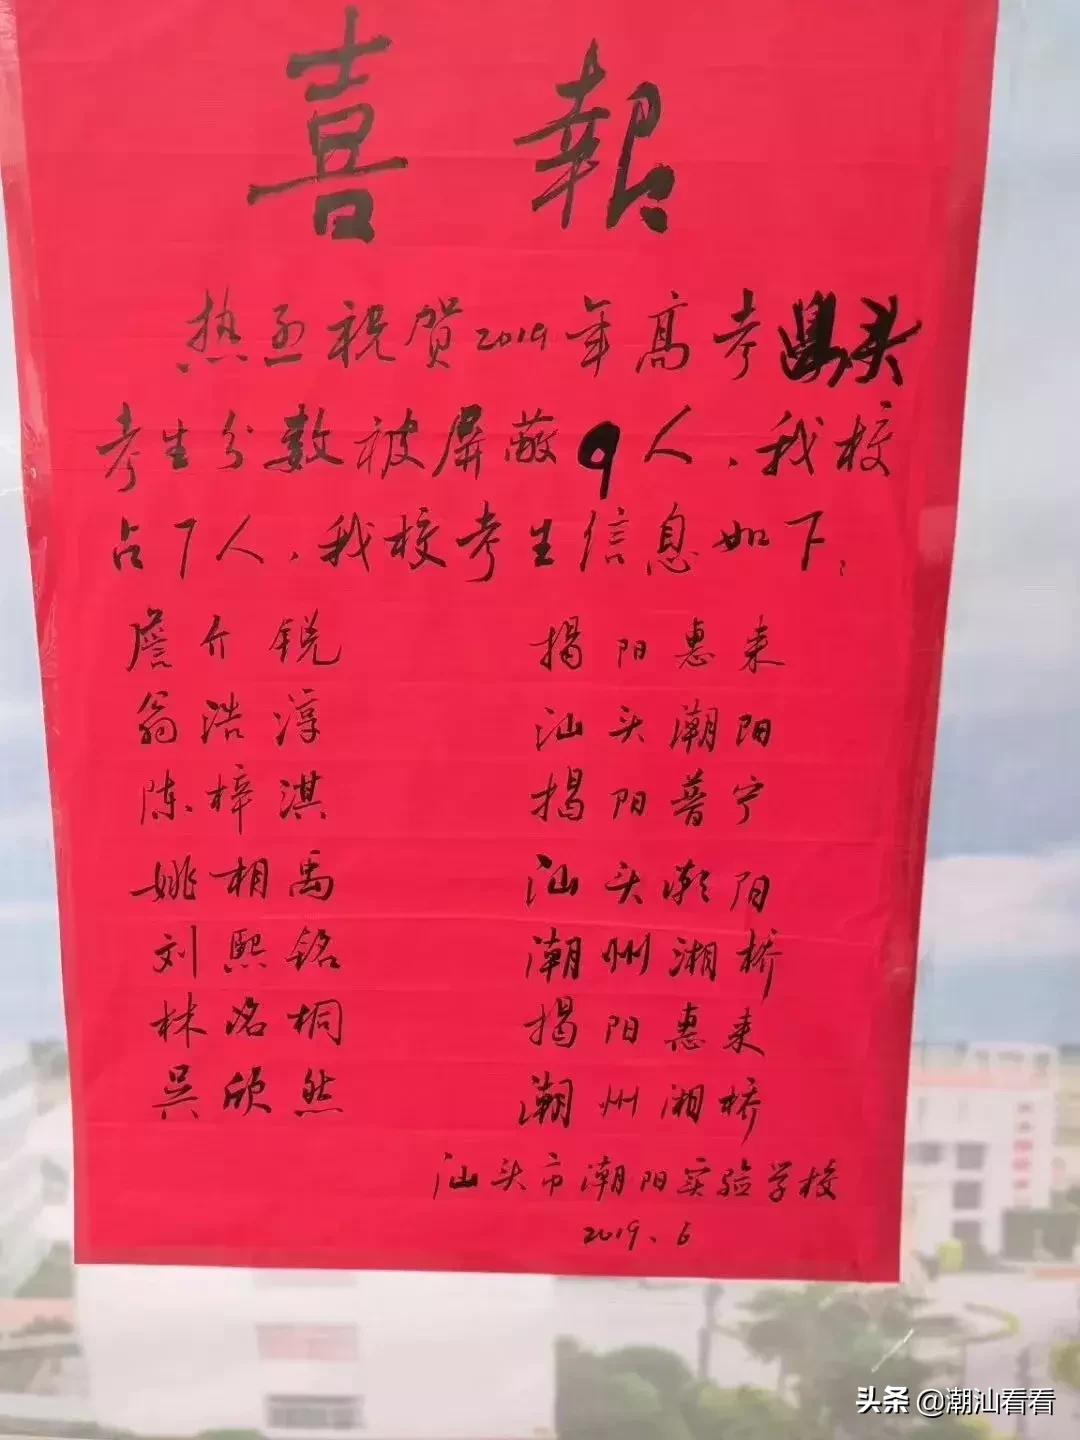 喜報
热烝祝贺2019年高考汕头
考生分数被屏蔽9人，我校
占7人，我校考生信息如下：
詹介锐 揭阳惠来
翁浩淳 汕头潮阳
陈梓淇 揭阳普宁
姚相禹 汕头潮阳
刘熙铭 潮州湘桥
林洺桐 揭阳惠来
吴欣然 潮州湘桥
汕头市潮阳实验学校
2019.6
头条 @潮汕看看